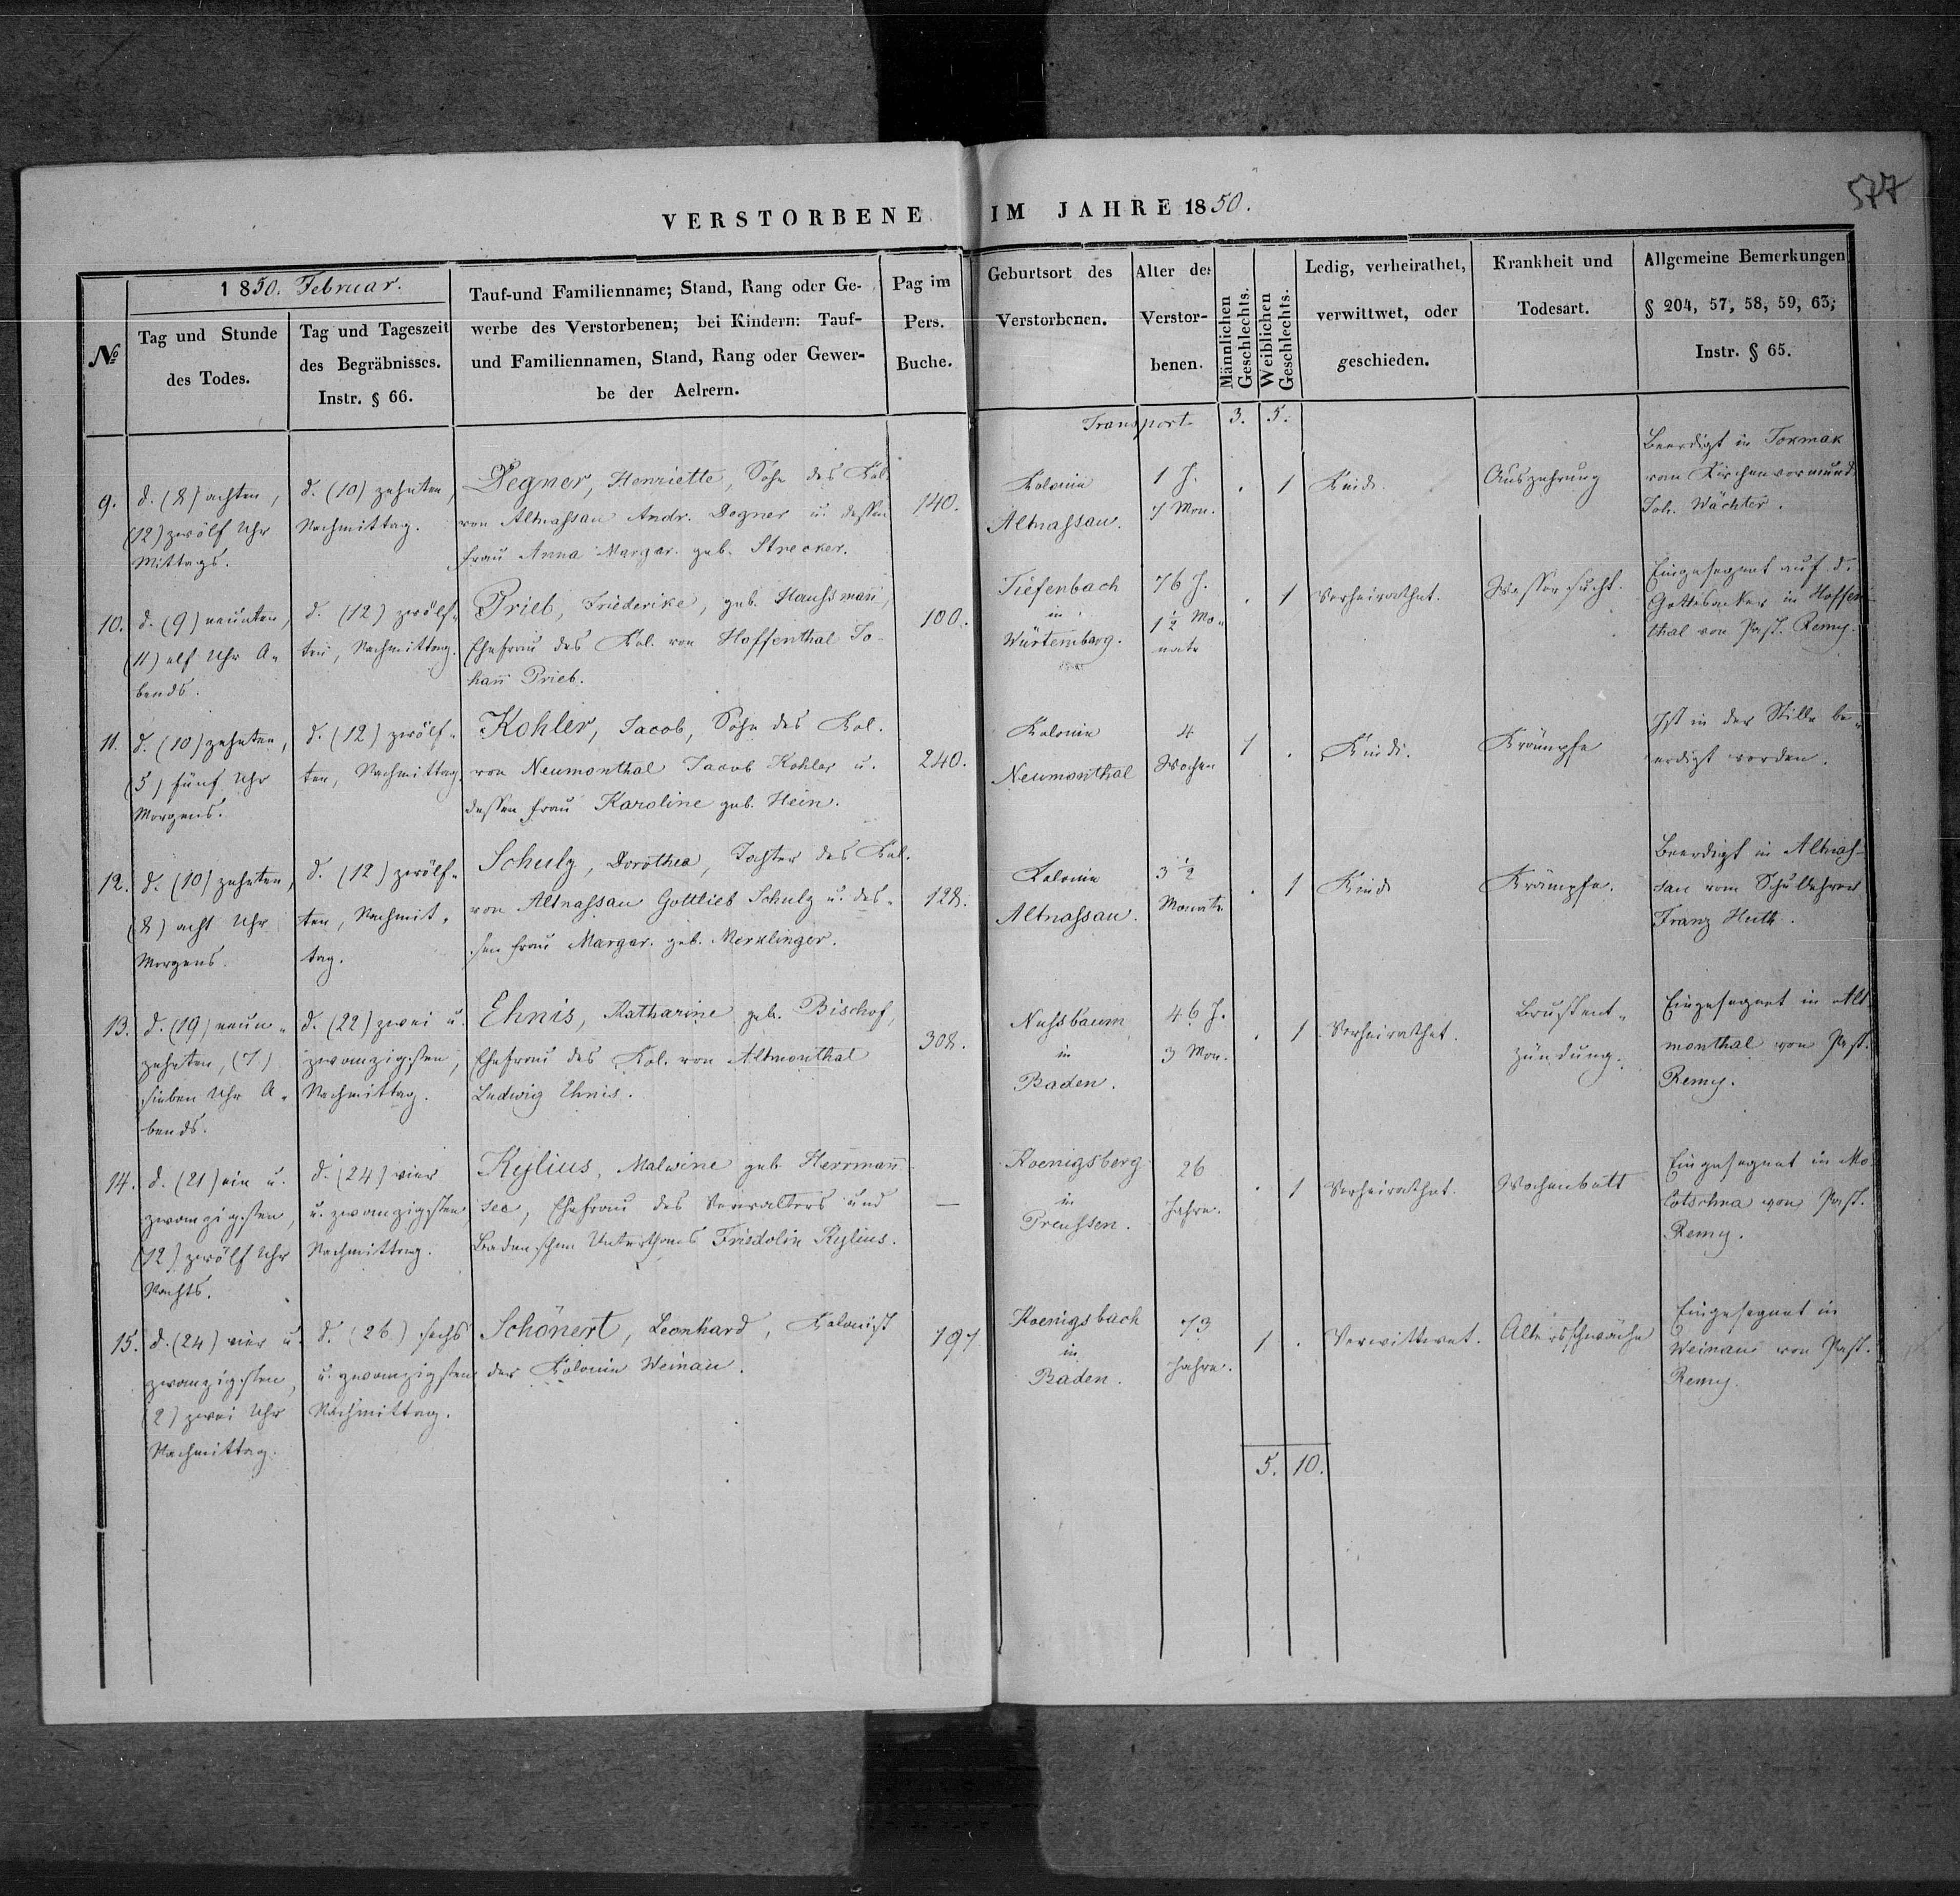 577
VERSTORBENE IM JAHRE 1850.
№
1850. Februar.
Tag und Stunde
des Todes.
Tag und Tageszeit
des Begräbnisses.
Instr. § 66.
Tauf-und Familienname; Stand, Rang oder Ge-
werbe des Verstorbenen; bei Kindern: Tauf-
und Familiennamen, Stand, Rang oder Gewer-
be der Aelrern.
Pag im
Pers.
Buche.
Geburtsort des
Verstorbenen.
Alter des
Verstor-
benen.
Männlichen
Geschlechts.
Weiblichen
Geschlechts.
Ledig, verheirathet,
verwittwet, oder
geschieden.
Krankheit und
Todesart.
Allgemeine Bemerkungen
§ 204, 57, 58, 59, 63,
Instr. § 65.
Transport 3. 5.
9.
d. (8) achten,
(12) zwölf Uhr
Mittags.
d. (10) zehnten,
Nachmittag.
Degner, Henriette, Sohn des Kol.
von Altnassau Andr. Degner u. dessen
Frau Anna Margar. geb. Strecker.
140.
Kolonie
Altnassau.
1 J.
7 Mon.
. 1
Kind.
Auszehrung
Beerdigt in Tokmak
vom Kirchenvormund
Joh. Wächter.
10.
d. (9) neunten,
(11) elf Uhr A-
bends.
d. (12) zwölf-
ten, Nachmittag.
Prieb, Friederike, geb. Haussmann,
Ehefrau des Kol. von Hoffenthal Jo-
hann Prieb.
100.
Tiefenbach
in
Würtemberg.
76 J.
1½ Mo-
nate
. 1
Verheirathet.
Wassersucht.
Eingesegnet auf d.
Gottesacker in Hoffen-
thal von Past. Remy.
11.
d. (10) zehnten,
(5) fünf Uhr
Morgens.
d. (12) zwölf-
ten, Nachmittag
Kohler, Jacob, Sohn des Kol.
von Neumonthal Jacob Kohler u.
dessen Frau Karoline geb. Hein.
240.
Kolonie
Neumonthal
4
Wochen
1 .
Kind.
Krämpfe
Ist in der Stille be-
erdigt worden.
12.
d. (10) zehnten,
(8) acht Uhr
Morgens.
d. (12) zwölf-
ten, Nachmit-
tag.
Schulz, Dorothea, Tochter des Kol.
von Altnassau Gottlieb Schulz u. des-
sen Frau Margar. geb. Merklinger.
128.
Kolonie
Altnassau.
3½
Monate
. 1
Kind
Krämpfe.
Beerdigt in Altnas-
sau vom Schullehrer
Franz Huth.
13.
d. (19) neun-
zehnten, (7)
sieben Uhr A-
bends.
d. (22) zwei u.
zwanzigsten,
Nachmittag.
Ehnis, Katharine geb. Bischof,
Ehefrau des Kol. von Altmonthal
Ludwig Ehnis.
308.
Nussbaum
in
Baden.
46 J.
3 Mon.
. 1
Verheirathet.
Brustent-
zündung.
Eingesegnet in Alt
monthal von Past.
Remy.
14.
d. (21) ein u.
zwanzigsten,
(12) zwölf Uhr
Nachts.
d. (24) vier
u. zwanzigsten,
Nachmittag.
Kylius, Malwine geb. Herrmann
see, Ehefrau des Verwalters und
Badenschen Unterthans Fridolin Kylius.
—
Koenigsberg
in
Preussen.
26
Jahre.
. 1
Verheirathet.
Wochenbett
Eingesegnet in Mo-
lotschna von Past.
Remy.
15.
d. (24) vier u.
zwanzigsten,
(2) zwei Uhr
Nachmittag.
d. (26) sechs
u. zwanzigsten
Nachmittag.
Schönert, Leonhard, Kolonist
der Kolonie Weinau.
197
Koenigsbach
in
Baden.
73
Jahre.
1 .
Verwittwet.
Altersschwäche
Eingesegnet in
Weinau von Past.
Remy.
5. 10.